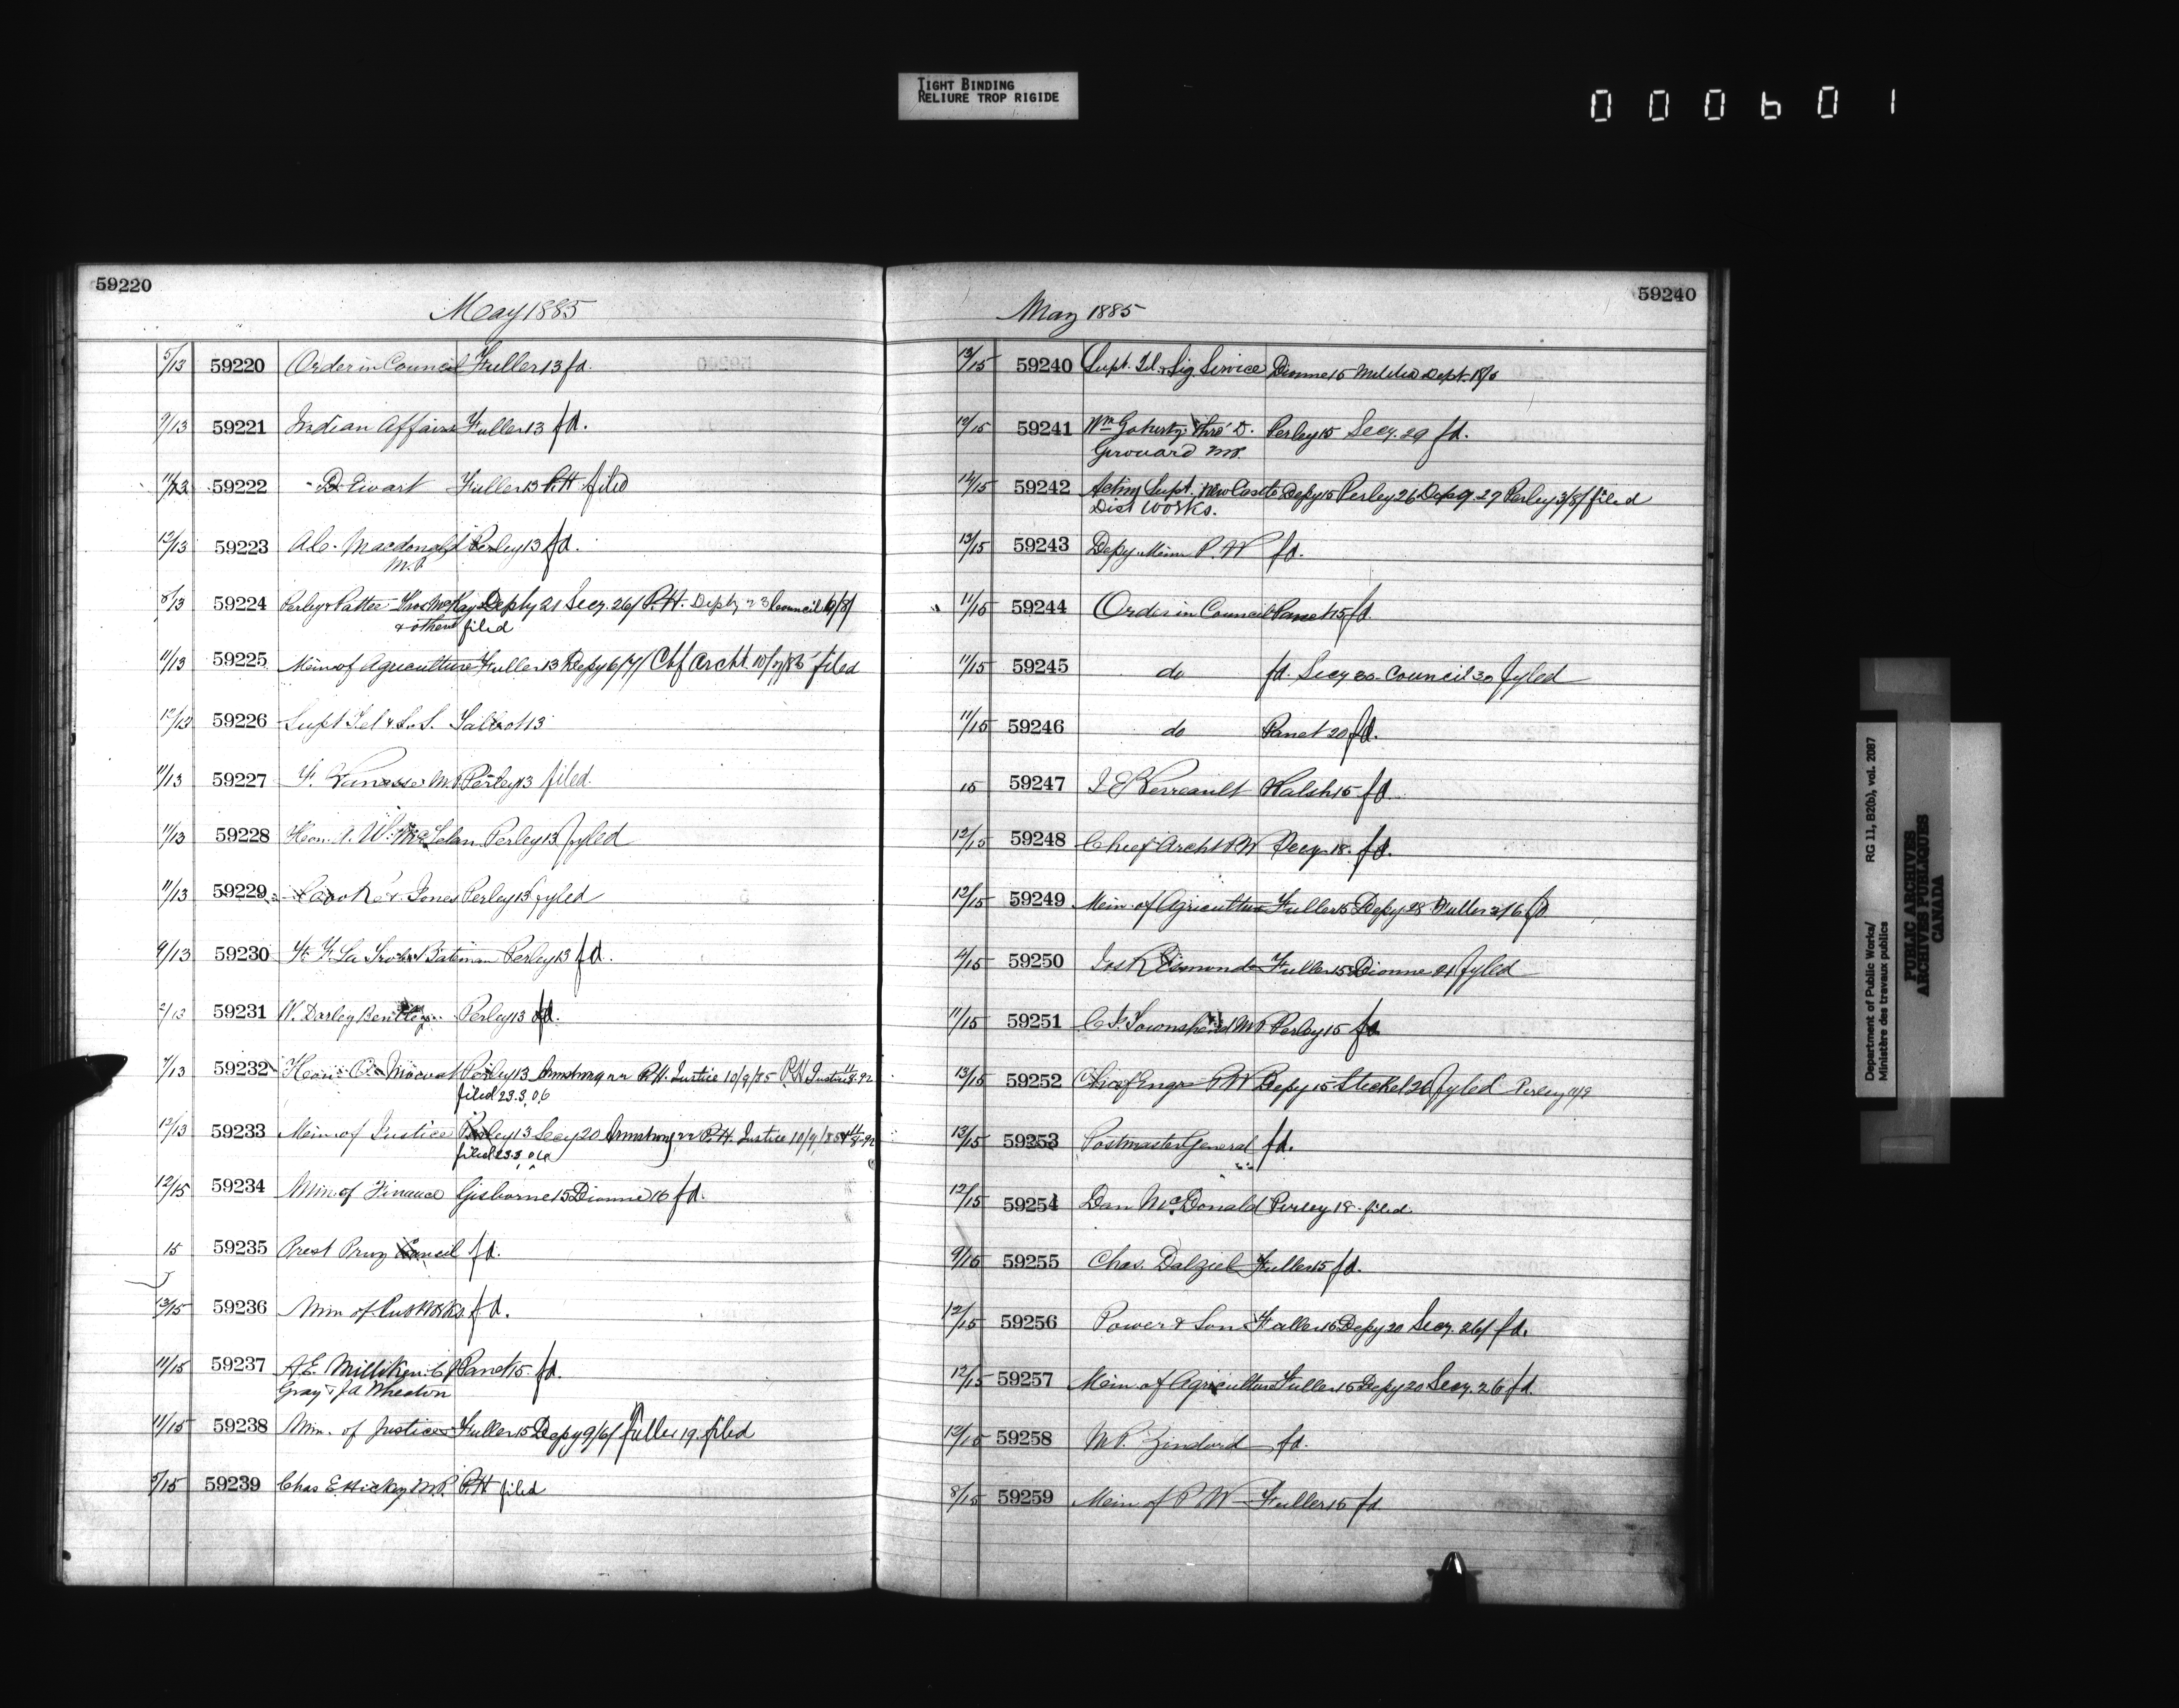 TIGHT BINDING
RELIURE TROP RIGIDE
000601
59220
May 1885
5/13 59220 Order in Council Fuller 13 fd.
9/13 59221 Indian Affairs Fuller 13 fd.
11/13 59222 D Ewart Fuller 13 P.H filed
12/13 59223 A.C. Macdonald Perley 13 fd.
M.P.
8/13 59224 Perley & Pattee Thos McKay Deply 21 Secy. 26/ P.H. Deply 23 Council 6/8/
& others filed
11/13 59225 Min of Agriculture Fuller 13 Depy 6/7/ Chf Archt. 10/7/85 filed
12/13 59226 Supt Tel & S. S. Talbot 13
11/13 59227 F. Vanasse M.P Perley 13 filed.
11/13 59228 Hon. A. W. McLelan Perley 13 fyled
11/13 59229 Cook & Jones Perley 13 fyled
9/13 59230 La Trobe Bateman Perley 13 fd.
2/13 59231 W. Darley Bentley Perley 13 fd.
7/13 59232 Hon O. Mowat Perley 13 Armstrong 22 P.H. Justice 10/9/85 P.H Justice 11/8-92
filed 23.3.06
12/13 59233 Min of Justice Perley 13 Secy 20 Armstrong 22 P.H. Justice 10/9/85 & 11/8-92
filed 23.3.06
12/15 59234 Min of Finance Gisborne 15 Dionne 16 fd.
15 59235 Prest Privy Council fd.
13/15 59236 Min of Pub Works fd.
11/15 59237 A.E. Milliken. C Panet 15. fd.
Gray & Ja Wheaton
11/15 59238 Min. of Justice Fuller 15 Depy 9/6/ Fuller 19. filed
5/15 59239 Chas E Hickey M.P. P.H filed
59240
May 1885
13/15 59240 Supt. Tel. & Sig. Service Dionne 15 Militia Dept. 18/5
12/15 59241 Wm Goherty thro' D. Perley 15 Secy. 29 fd.
Girouard M.P.
14/15 59242 Acting Supt. New Castle Depy 15 Perley 26 Depy. 27 Perley 3/8/ filed
Dist Works.
13/15 59243 Depy. Min P. W fd.
11/15 59244 Order in Council Panet 15 fd.
11/15 59245 do fd. Secy 30. Council 30 fyled
11/15 59246 do Panet 20 fd.
15 59247 J E Perreault Walsh 15 fd.
12/15 59248 Chief Archt P.W Secy 18. fd.
12/15 59249 Min. of Agriculture Fuller 15 Depy 28 Fuller 2/6 fd
4/15 59250 Jos R Esmonde Fuller 15 Dionne 21 fyled
11/15 59251 C. J. Townshend M.P Perley 15 fd.
13/15 59252 Chief Engr P.W Depy 15 Steckel 26 fyled Perley 11/9
13/15 59253 Postmaster General fd.
12/15 59254 Dan McDonald Perley 18. filed.
9/15 59255 Chas. Dalziel Fuller 15 fd.
12/15 59256 Power & Son Fuller 15 Depy 20 Secy. 26/ fd.
12/15 59257 Min. of Agriculture Fuller 15 Depy 20 Secy. 26 fd.
12/15 59258 fd.
8/15 59259 Min of P. W Fuller 15 fd.
Department of Public Works/ RG 11, B2(b), vol. 2087
Ministère des travaux publics
PUBLIC ARCHIVES
ARCHIVES PUBLIQUES
CANADA